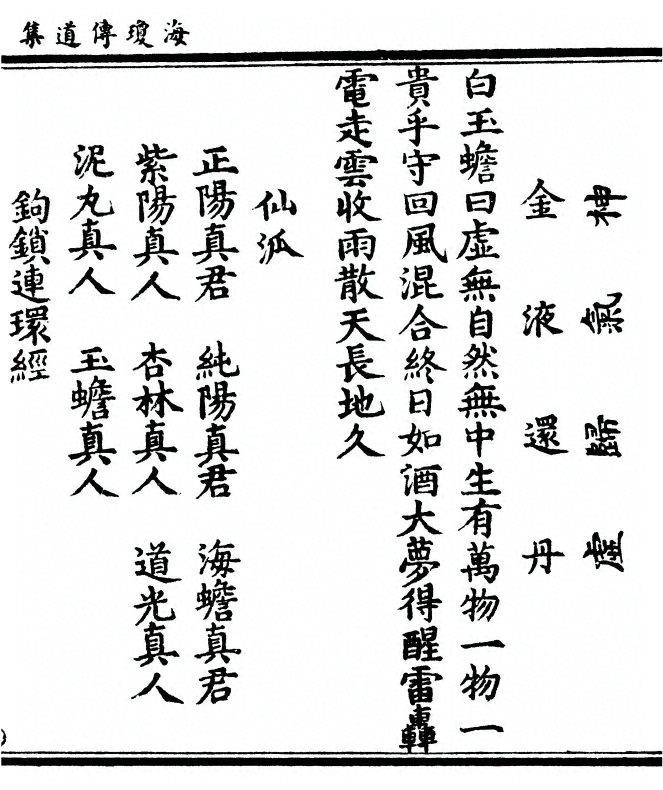 海瓊傳道集
神氣歸虛
金液還丹
白玉蟾曰虛無自然無中生有萬物一物一
貴乎守回風混合終日如酒大夢得醒雷轟
電走雲收雨散天長地久
仙泒
正陽真君 純陽真君 海蟾真君
紫陽真人 杏林真人 道光真人
泥丸真人 玉蟾真人
鉤鎖連環經